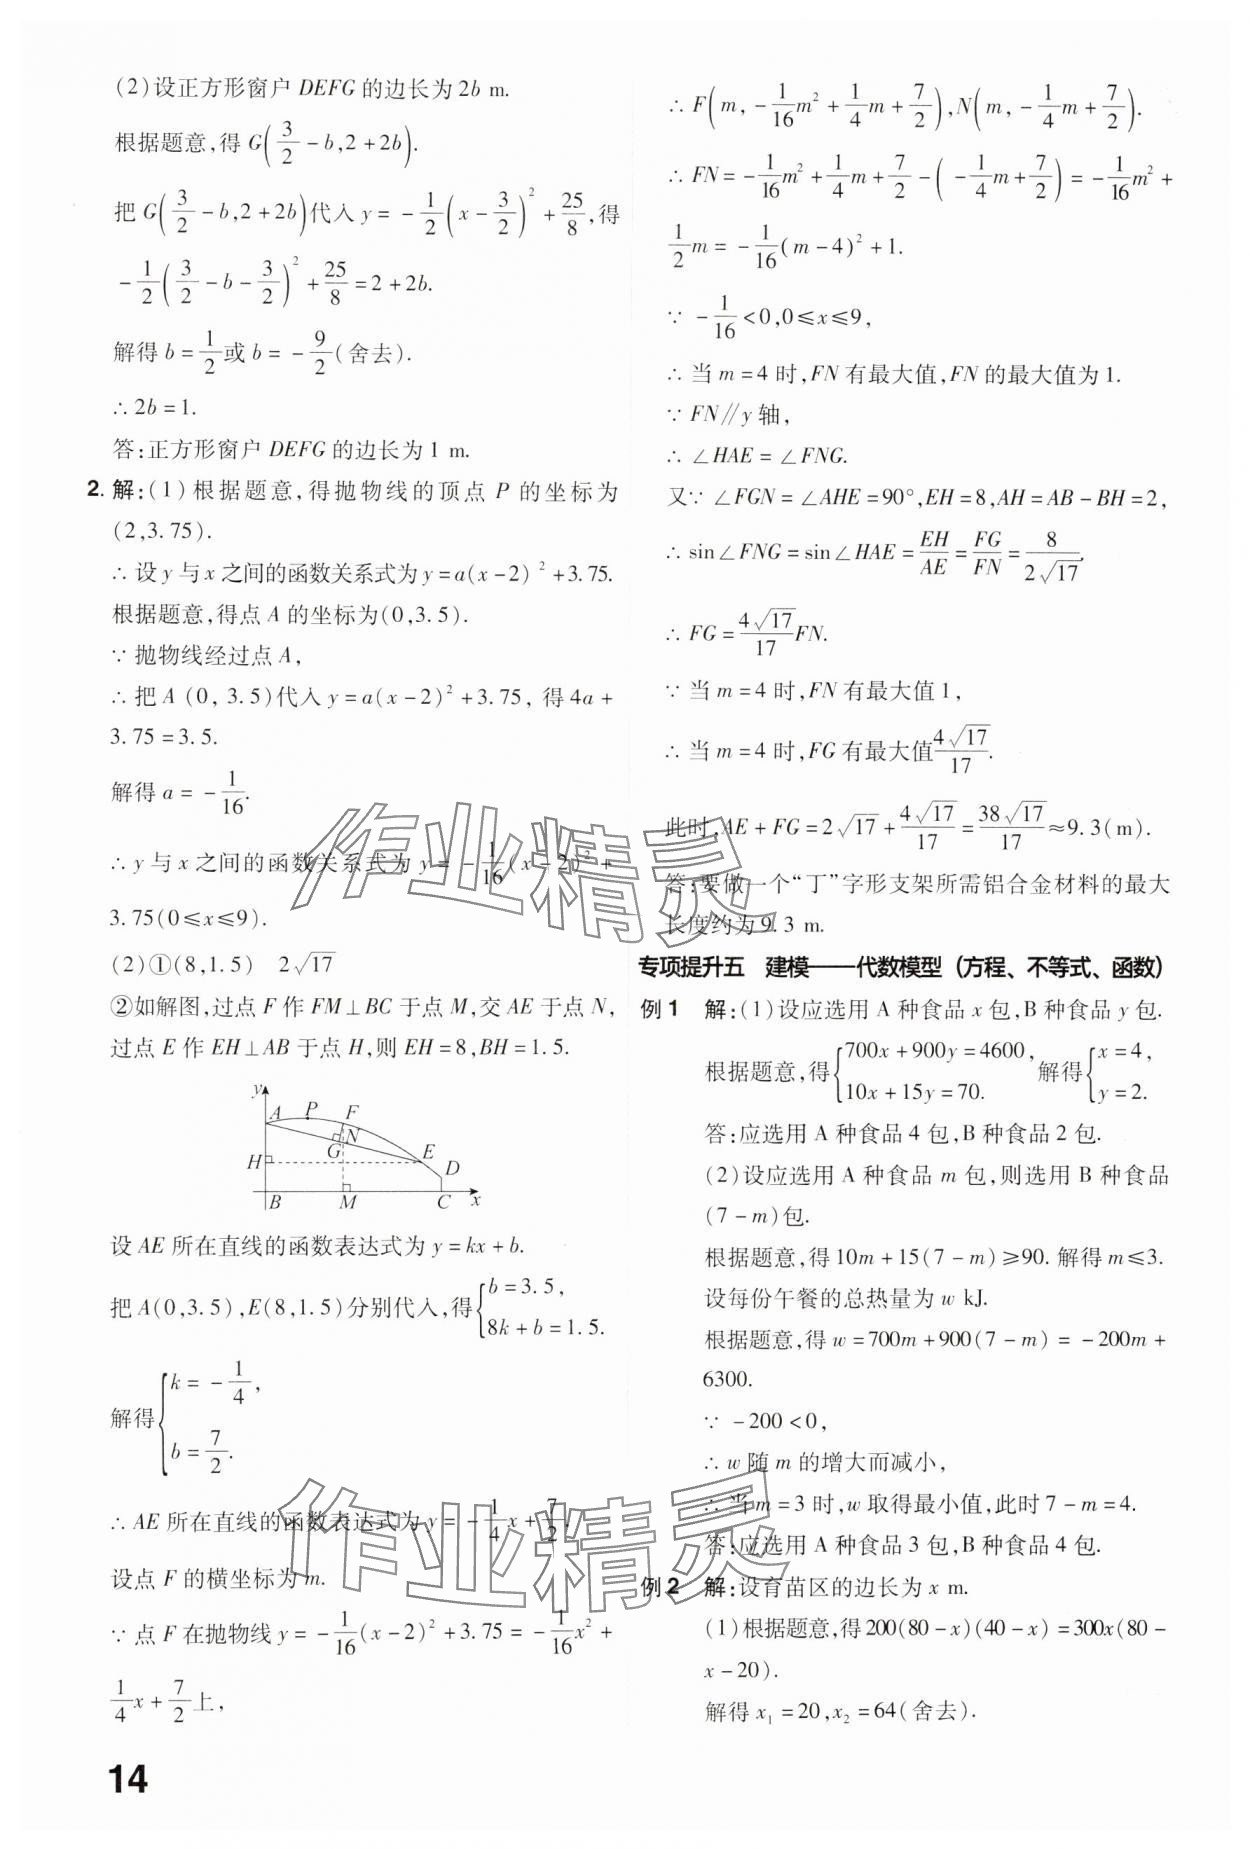 (2)设正方形窗户 DEFG 的边长为 2b m.
根据题意,得 G(3/2-b,2+2b).
把 G(3/2-b,2+2b)代入 y=-1/2(x-3/2)²+25/8,得
-1/2(3/2-b-3/2)²+25/8=2+2b.
解得 b=1/2或 b=-9/2(舍去).
∴2b=1.
答:正方形窗户 DEFG 的边长为 1 m.
2. 解:(1)根据题意,得抛物线的顶点 P 的坐标为
(2,3.75).
∴设 y 与 x 之间的函数关系式为 y=a(x-2)²+3.75.
根据题意,得点 A 的坐标为(0,3.5).
∵抛物线经过点 A,
∴把 A (0, 3.5)代入 y=a(x-2)²+3.75, 得 4a+
3.75=3.5.
解得 a=-1/16.
∴y 与 x 之间的函数关系式为 y=-1/16(x-2)²+
3.75(0≤x≤9).
(2)①(8,1.5) 2√17
②如解图,过点 F 作 FM⊥BC 于点 M,交 AE 于点 N,
过点 E 作 EH⊥AB 于点 H,则 EH=8,BH=1.5.
y
A P F
N
G E
H D
B M C x
设 AE 所在直线的函数表达式为 y=kx+b.
把 A(0,3.5),E(8,1.5)分别代入,得{b=3.5, 8k+b=1.5.
解得{k=-1/4, b=7/2.
∴AE 所在直线的函数表达式为 y=-1/4x+7/2.
设点 F 的横坐标为 m.
∵点 F 在抛物线 y=-1/16(x-2)²+3.75=-1/16x²+
1/4x+7/2上,
14
∴F(m,-1/16m²+1/4m+7/2),N(m,-1/4m+7/2).
∴FN=-1/16m²+1/4m+7/2-(-1/4m+7/2)=-1/16m²+
1/2m=-1/16(m-4)²+1.
∵-1/16<0,0≤x≤9,
∴当 m=4 时,FN 有最大值,FN 的最大值为 1.
∵FN∥y 轴,
∴∠HAE=∠FNG.
又∵∠FGN=∠AHE=90°,EH=8,AH=AB-BH=2,
∴sin∠FNG=sin∠HAE=EH/AE=FG/FN=8/2√17.
∴FG=4√17/17FN.
∵当 m=4 时,FN 有最大值 1,
∴当 m=4 时,FG 有最大值4√17/17.
此时,AE+FG=2√17+4√17/17=38√17/17≈9.3(m).
答:要做一个“丁”字形支架所需铝合金材料的最大
长度约为 9.3 m.
专项提升五 建模——代数模型(方程、不等式、函数)
例 1 解:(1)设应选用 A 种食品 x 包,B 种食品 y 包.
根据题意,得{700x+900y=4600, 10x+15y=70. 解得{x=4, y=2.
答:应选用 A 种食品 4 包,B 种食品 2 包.
(2)设应选用 A 种食品 m 包,则选用 B 种食品
(7-m)包.
根据题意,得 10m+15(7-m)≥90. 解得 m≤3.
设每份午餐的总热量为 w kJ.
根据题意,得 w=700m+900(7-m)=-200m+
6300.
∵-200<0,
∴w 随 m 的增大而减小,
∴当 m=3 时,w 取得最小值,此时 7-m=4.
答:应选用 A 种食品 3 包,B 种食品 4 包.
例 2 解:设育苗区的边长为 x m.
(1)根据题意,得 200(80-x)(40-x)=300x(80-
x-20).
解得 x₁=20,x₂=64(舍去).
作业精灵
作业精灵